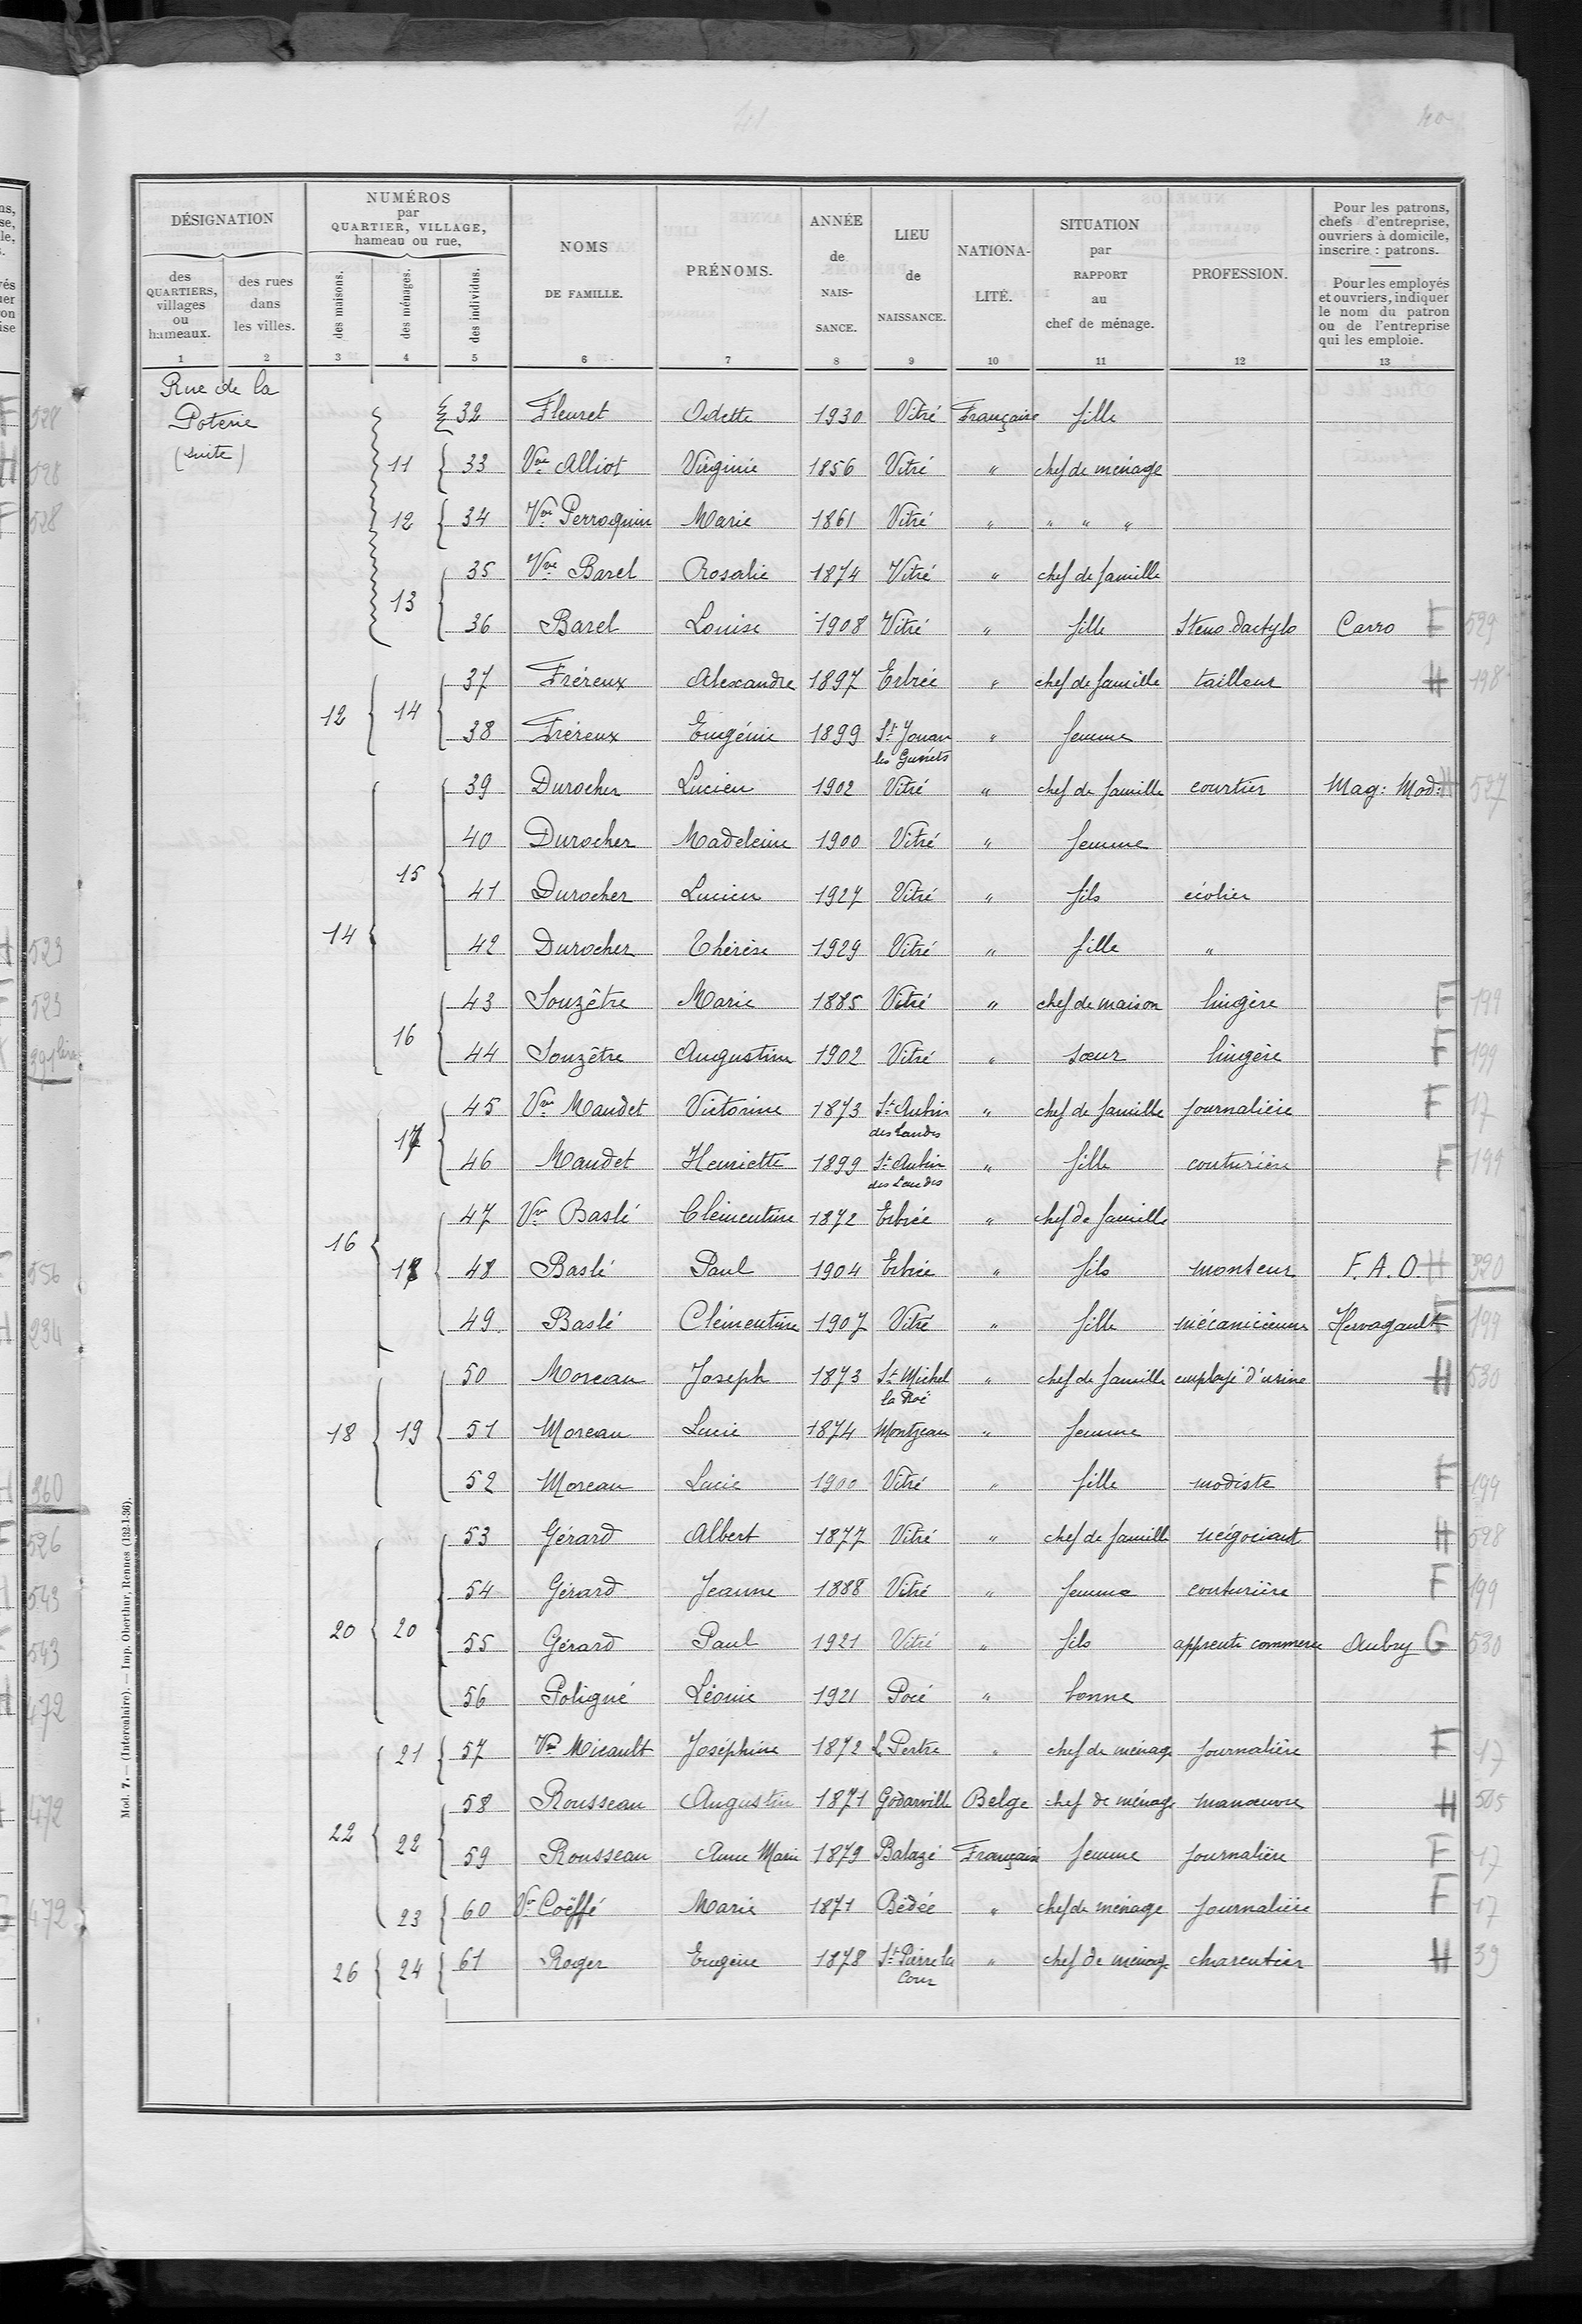 DÉSIGNATION
des QUARTIERS, villages ou hameaux.
des rues dans les villes.
NUMÉROS par QUARTIER, VILLAGE, hameau ou rue,
des maisons.
des ménages.
des individus.
NOMS DE FAMILLE.
PRÉNOMS.
ANNÉE de NAIS-SANCE.
LIEU de NAISSANCE.
NATIONA-LITÉ.
SITUATION par RAPPORT au chef de ménage.
PROFESSION.
Pour les patrons, chefs d'entreprise, ouvriers à domicile, inscrire : patrons.
Pour les employés et ouvriers, indiquer le nom du patron ou de l'entreprise qui les emploie.
1 2 3 4 5 6 7 8 9 10 11 12 13
Rue de la
Poterie
(suite)
32 Fleuret Odette 1930 Vitré Française fille
11 33 Vve Alliot Virginie 1856 Vitré " chef de ménage
12 34 Vve Perroquin Marie 1861 Vitré " " " "
35 Vve Barel Rosalie 1874 Vitré " chef de famille
13
36 Barel Louise 1908 Vitré " fille Steno-dactylo Carro F 529
37 Fréreux Alexandre 1897 Erbrée " chef de famille tailleur H 198
12 14
38 Fréreux Eugénie 1899 St Jouan les Guérets " femme
39 Durocher Lucien 1902 Vitré " chef de famille courtier Mag: Mod: H 527
40 Durocher Madeleine 1900 Vitré " femme
15
41 Durocher Lucien 1927 Vitré " fils écolier
14
42 Durocher Thérèse 1929 Vitré " fille "
43 Souzêtre Marie 1885 Vitré " chef de maison lingère F 199
16
44 Souzêtre Augustine 1902 Vitré " sœur lingère F 199
45 Vve Maudet Victorine 1873 St Aubin des Landes " chef de famille journalière F 17
17
46 Maudet Henriette 1899 St Aubin des Landes " fille couturière F 199
47 Vve Baslé Clémentine 1872 Erbrée " chef de famille
16
18 48 Baslé Paul 1904 Erbrée " fils monteur F.A.O. H 390
49 Baslé Clémentine 1907 Vitré " fille mécanicienne Hervagault F 199
50 Moreau Joseph 1873 St Michel la Roë " chef de famille employé d'usine H 530
18 19 51 Moreau Lucie 1874 Montjean " femme
52 Moreau Lucie 1900 Vitré " fille modiste F 199
53 Gérard Albert 1877 Vitré " chef de famille négociant H 528
54 Gérard Jeanne 1888 Vitré " femme couturière F 199
20 20
55 Gérard Paul 1921 Vitré " fils apprenti commerce Aubry G 530
56 Poligné Léonie 1921 Pocé " bonne
21 57 Vve Micault Joséphine 1872 Le Pertre " chef de ménage journalière F 17
58 Rousseau Augustin 1871 Godarville Belge chef de ménage manœuvre H 505
22 22
59 Rousseau Anne Marie 1879 Balazé Française femme journalière F 17
23 60 Vve Coëffé Marie 1871 Bédée " chef de ménage journalière F 17
26 24 61 Roger Eugène 1878 St Pierre la Cour " chef de ménage charcutier H 39
Mod. 7. — (Intercalaire). — Imp. Oberthur, Rennes (132-1-36).